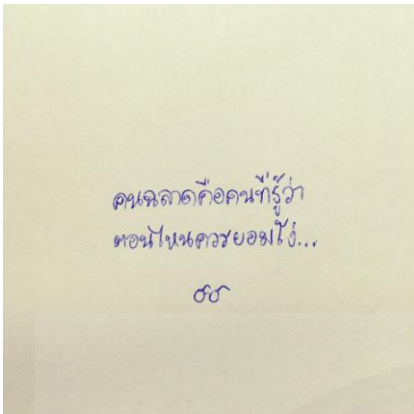 คนฉลาดคือคนที่รู้ว่า
ตอนไหนควรยอมโง่...